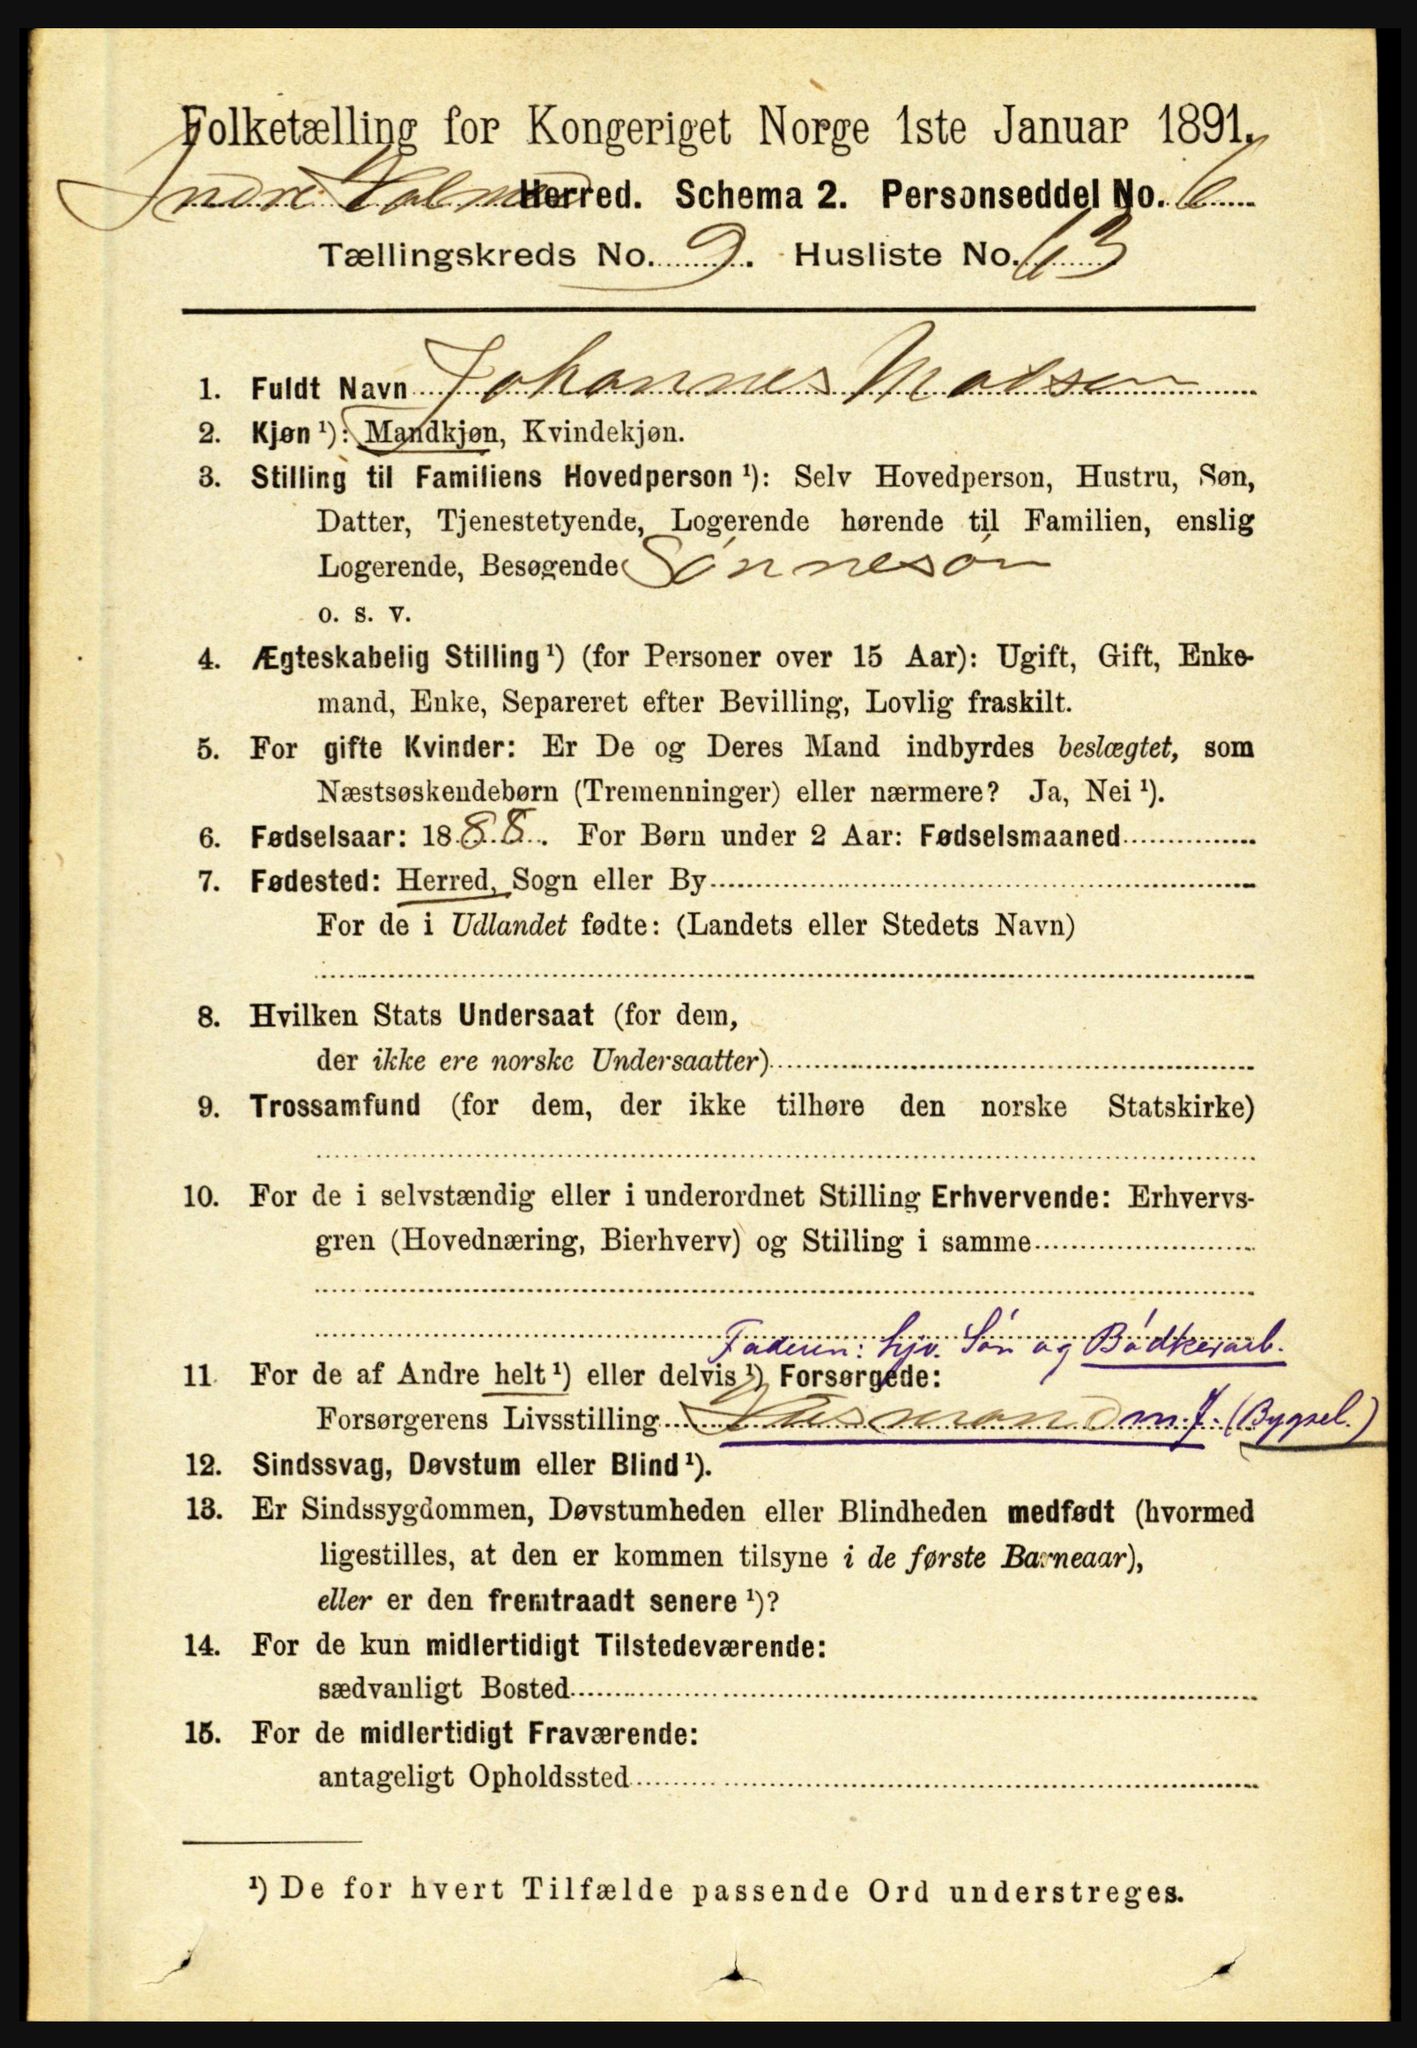 Folketælling for Kongeriget Norge 1ste Januar 1891.
Indre Holmedal Herred. Schema 2. Personseddel No. 6
Tællingskreds No. 9. Husliste No. 63
1. Fuldt Navn Johannes Madsen
2. Kjøn ¹): Mandkjøn, Kvindekjøn.
3. Stilling til Familiens Hovedperson ¹): Selv Hovedperson, Hustru, Søn,
Datter, Tjenestetyende, Logerende hørende til Familien, enslig
Logerende, Besøgende Sønnesøn
o. s. v.
4. Ægteskabelig Stilling ¹) (for Personer over 15 Aar): Ugift, Gift, Enke-
mand, Enke, Separeret efter Bevilling, Lovlig fraskilt.
5. For gifte Kvinder: Er De og Deres Mand indbyrdes beslægtet, som
Næstsøskendebørn (Tremenninger) eller nærmere? Ja, Nei ¹).
6. Fødselsaar: 1888. For Børn under 2 Aar: Fødselsmaaned
7. Fødested: Herred, Sogn eller By
For de i Udlandet fødte: (Landets eller Stedets Navn)
8. Hvilken Stats Undersaat (for dem,
der ikke ere norske Undersaatter)
9. Trossamfund (for dem, der ikke tilhøre den norske Statskirke)
10. For de i selvstændig eller i underordnet Stilling Erhvervende: Erhvervs-
gren (Hovednæring, Bierhverv) og Stilling i samme
Faderen: hjv. Søn og Bødkerarb.
11. For de af Andre helt ¹) eller delvis ¹) Forsørgede:
Forsørgerens Livsstilling Husmand m. J. (Bygsel.)
12. Sindssvag, Døvstum eller Blind ¹).
13. Er Sindssygdommen, Døvstumheden eller Blindheden medfødt (hvormed
ligestilles, at den er kommen tilsyne i de første Barneaar),
eller er den fremtraadt senere ¹)?
14. For de kun midlertidigt Tilstedeværende:
sædvanligt Bosted
15. For de midlertidigt Fraværende:
antageligt Opholdssted
¹) De for hvert Tilfælde passende Ord understreges.